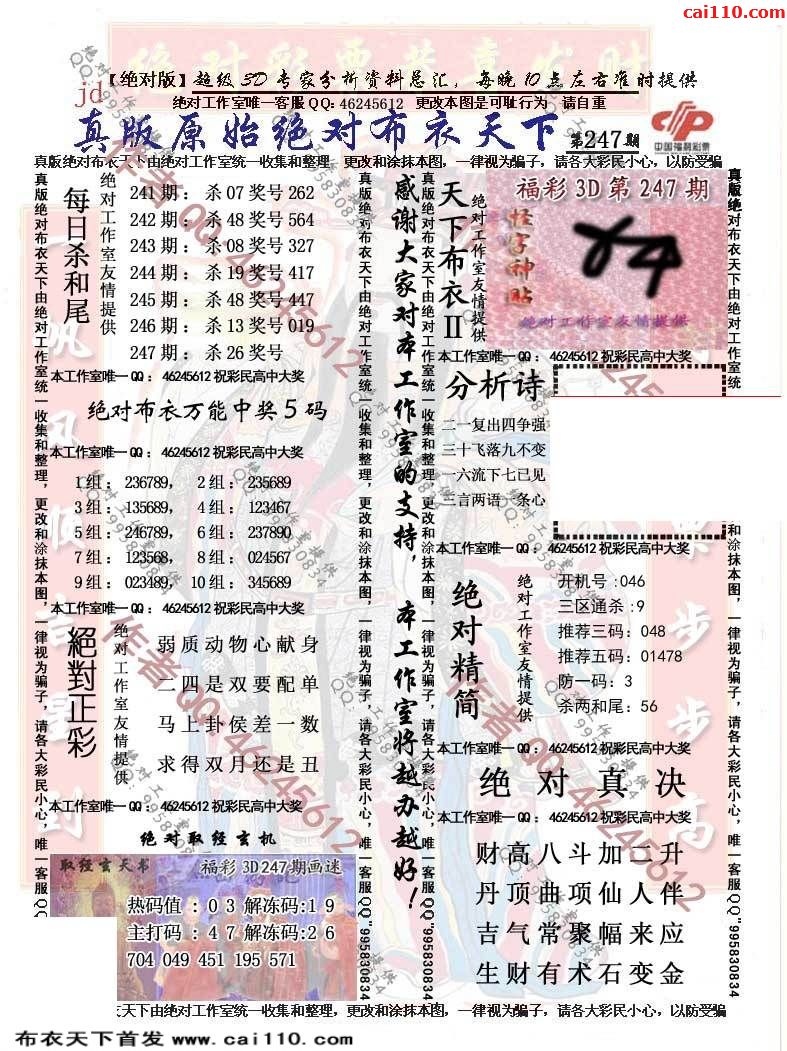 cai110.com
绝对彩票恭喜发财
【绝对版】超级3D专家分析资料总汇，每晚10点左右准时提供
jd
绝对工作室唯一客服QQ:46245612 更改本图是可耻行为 请自重
真版原始绝对布衣天下 第247期
中国福利彩票
真版绝对布衣天下由绝对工作室统一收集和整理，更改和涂抹本图，一律视为骗子，请各大彩民小心，以防受骗
每日杀和尾
绝对工作室友情提供
241期：杀07奖号262
242期：杀48奖号564
243期：杀08奖号327
244期：杀19奖号417
245期：杀48奖号447
246期：杀13奖号019
247期：杀26奖号
本工作室唯一QQ：46245612祝彩民高中大奖
绝对布衣万能中奖5码
本工作室唯一QQ：46245612祝彩民高中大奖
1组：236789， 2组：235689
3组：135689， 4组：123467
5组：246789， 6组：237890
7组：123568， 8组：024567
9组：023489， 10组：345689
本工作室唯一QQ：46245612祝彩民高中大奖
絕對正彩
绝对工作室友情提供
弱质动物心献身
二四是双要配单
马上卦侯差一数
求得双月还是丑
本工作室唯一QQ：46245612祝彩民高中大奖
绝对取经玄机
取经玄天书
福彩3D247期画迷
热码值：03解冻码:19
主打码：47解冻码:26
704 049 451 195 571
感谢大家对本工作室的支持，本工作室将越办越好！
天下布衣II
绝对工作室友情提供
福彩3D第247期
怪字神贴
绝对工作室友情提供
本工作室唯一QQ：46245612祝彩民高中大奖
分析诗
二一复出四争强
三十飞落九不变
一六流下七已见
三言两语一条心
本工作室唯一QQ：46245612祝彩民高中大奖
绝对精简
绝对工作室友情提供
开机号:046
三区通杀:9
推荐三码：048
推荐五码：01478
防一码：3
杀两和尾：56
本工作室唯一QQ：46245612祝彩民高中大奖
绝对真决
本工作室唯一QQ：46245612祝彩民高中大奖
财高八斗加二升
丹顶曲项仙人伴
吉气常聚幅来应
生财有术石变金
真版绝对布衣天下由绝对工作室统一收集和整理，更改和涂抹本图，一律视为骗子，请各大彩民小心，唯一客服QQ"995830834
天下由绝对工作室统一收集和整理，更改和涂抹本图，一律视为骗子，请各大彩民小心，以防受骗
布衣天下首发 www.cai110.com